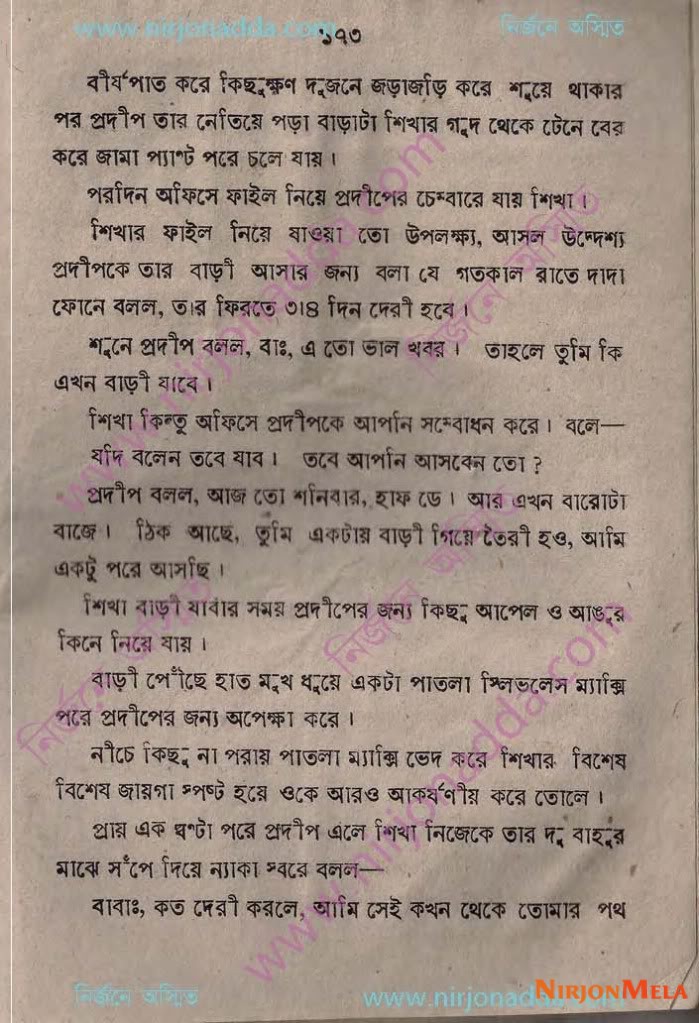 www.nirjonadda.com ১৭৩ নির্জনে অস্মিত
বীর্যপাত করে কিছুক্ষণ দুজনে জড়াজড়ি করে শুয়ে থাকার
পর প্রদীপ তার নেতিয়ে পড়া বাড়াটা শিখার গুদ থেকে টেনে বের
করে জামা প্যাণ্ট পরে চলে যায়।
পরদিন অফিসে ফাইল নিয়ে প্রদীপের চেম্বারে যায় শিখা।
শিখার ফাইল নিয়ে যাওয়া তো উপলক্ষ্য, আসল উদ্দেশ্য
প্রদীপকে তার বাড়ী আসার জন্য বলা যে গতকাল রাতে দাদা
ফোনে বলল, তার ফিরতে ৩।৪ দিন দেরী হবে।
শুনে প্রদীপ বলল, বাঃ, এ তো ভাল খবর। তাহলে তুমি কি
এখন বাড়ী যাবে।
শিখা কিন্তু অফিসে প্রদীপকে আপনি সম্বোধন করে। বলে—
যদি বলেন তবে যাব। তবে আপনি আসবেন তো ?
প্রদীপ বলল, আজ তো শনিবার, হাফ ডে। আর এখন বারোটা
বাজে। ঠিক আছে, তুমি একটায় বাড়ী গিয়ে তৈরী হও, আমি
একটু পরে আসছি।
শিখা বাড়ী যাবার সময় প্রদীপের জন্য কিছু আপেল ও আঙুর
কিনে নিয়ে যায়।
বাড়ী পৌঁছে হাত মুখ ধুয়ে একটা পাতলা স্লিভলেস ম্যাক্সি
পরে প্রদীপের জন্য অপেক্ষা করে।
নীচে কিছু না পরায় পাতলা ম্যাক্সি ভেদ করে শিখার বিশেষ
বিশেষ জায়গা স্পষ্ট হয়ে ওকে আরও আকর্ষণীয় করে তোলে।
প্রায় এক ঘণ্টা পরে প্রদীপ এলে শিখা নিজেকে তার দু বাহুর
মাঝে সঁপে দিয়ে ন্যাকা স্বরে বলল—
বাবাঃ, কত দেরী করলে, আমি সেই কখন থেকে তোমার পথ
নির্জনে অস্মিত www.nirjonadda.com NIRJONMELA
www.nirjonadda.com নির্জনে অস্মিত
নির্জনে অস্মিত www.nirjonadda.com